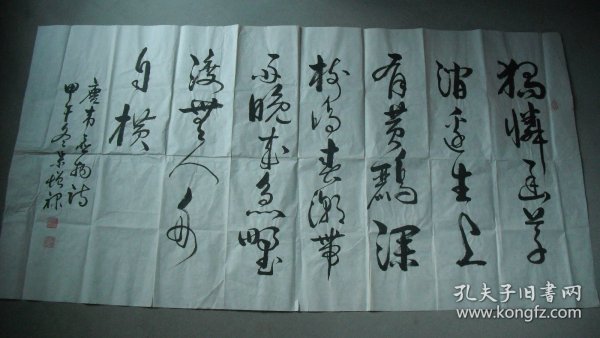 獨憐幽草
澗邊生上
有黄鸝深
樹鳴春潮帶
雨晚来急野
渡無人舟
自横
唐韦应物诗
甲午冬
孔夫子旧书网
www.kongfz.com